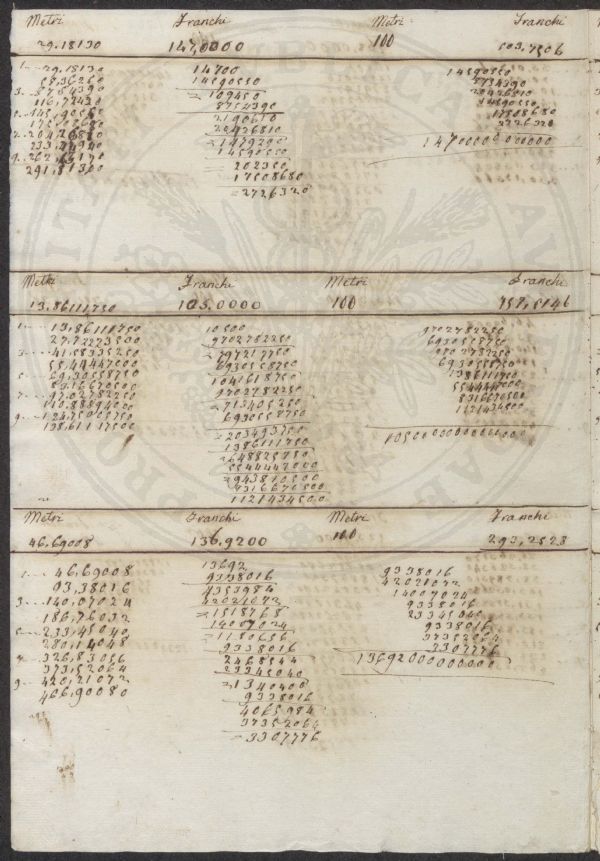 Metri Franchi Metri Franchi
29.18130 147,0000 100 503,7506
1... 29,18130
58,36260
3... 87,54390
175,08680
7... 204,26810
291,81300
14700
14590550
= 109450
8754390
2190610
20426810
= 1479290
14590550
= 202350
17508680
= 2726320
14590550
8754390
20426810
14590550
17508680
2726320
147000000000000
Metri Franchi Metri Franchi
13,86111750 105.0000 100 757,5146
1... 13,86111750
27,72223500
3... 41,58335250
55,44447000
5... 69,30558750
83,16670500
7... 97,02782250
110,88894000
9... 124,75005750
138,61117500
10500
9702782250
= 797217750
6930558750
1041618750
9702782250
= 713405250
6930558750
= 203493750
1386111750
= 648825750
5544447000
= 943810500
8316670500
1121434500
9702782250
6930558750
9702782250
6930558750
1386111750
5544447000
8316670500
1121434500
Metri Franchi Metri Franchi
46.69008 136,9200 100 293,2528
1... 46,69008
93,38016
3... 140,07024
186,76032
5... 233,45040
280,14048
7... 326,83056
373,52064
9... 420,21072
466,90080
13692
9338016
4353984
42021072
= 1518768
14007024
= 1180656
9338016
2468544
23345040
= 1340400
9338016
4065984
37352064
= 3307776
9338016
42021072
14007024
9338016
23345040
9338016
37352064
3307776
13692000000000